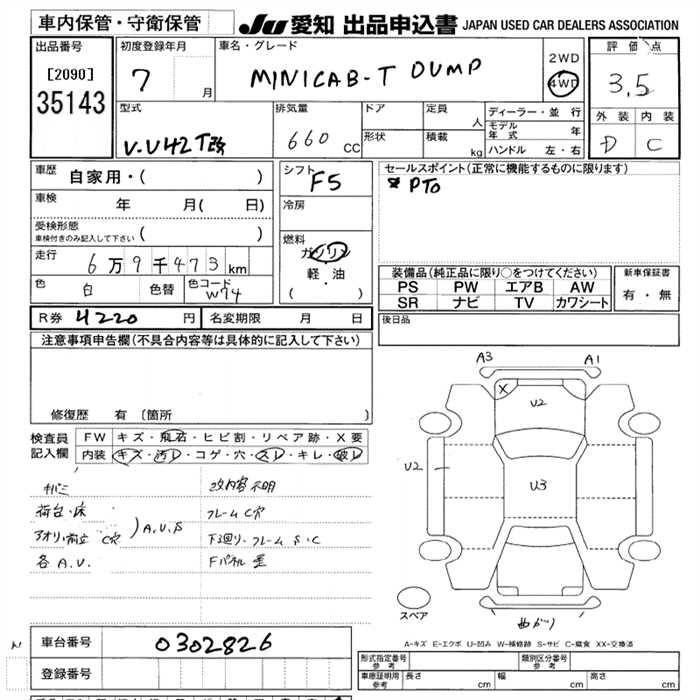 車内保管・守衛保管 JU 愛知 出品申込書 JAPAN USED CAR DEALERS ASSOCIATION
出品番号
[2090]
35143
初度登録年月
7 月
車名・グレード
MINICAB-T DUMP
2WD
4WD
評価点
3.5
外装 内装
D C
型式
V-U42T改
排気量
660 cc
ドア
形状
定員 人
積載 kg
ディーラー・並行
モデル年式 年
ハンドル 左・右
車歴
自家用・( )
車検 年 月( 日)
受検形態
車検付きのみ記入して下さい ( )
走行 6万9千473km
色 白 色替 色コード W74
シフト
F5
冷房
燃料
ガソリン
軽・油
( ・ )
セールスポイント(正常に機能するものに限ります)
PTO
装備品(純正品に限り○をつけてください)
PS PW エアB AW
SR ナビ TV カワシート
新車保証書
有・無
後日品
R券 4220 円 名変期限 月 日
注意事項申告欄(不具合内容等は具体的に記入して下さい)
修復歴 有 [箇所 ]
検査員
記入欄
FW キズ・飛石・ヒビ割・リペア跡・X要
内装 キズ・汚レ・コゲ・穴・スレ・キレ・破レ
荷台・床
C穴
A.U.S
各A.U.
改内容不明
フレームC穴
下廻り・フレームS・C
A3 A1
U2
U2
U3
X
スペア
曲がり
A-キズ E-エクボ U-凹み W-補修跡 S-サビ C-腐食 XX-交換済
車台番号 0302826
登録番号
形式指定番号
参考
類別区分番号
参考
車庫証明用
参考
長さ cm 幅 cm 高さ cm